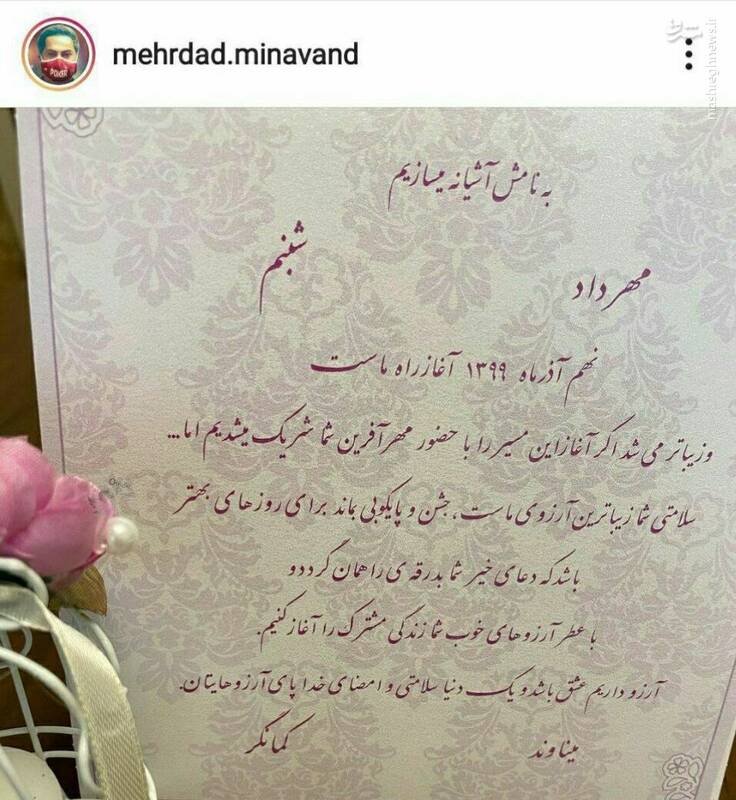 mehrdad.minavand
مشرق
mashreghnews.ir
POWER
به نامش آشیانه میسازیم
شبنم
مهرداد
نهم آذرماه ۱۳۹۹ آغاز راه ماست
وزیباتر می شد اگر آغاز این مسیر را با حضور مهرآفرین شما شریک میشدیم اما...
سلامتی شما زیباترین آرزوی ماست، جشن و پایکوبی بماند برای روزهای بهتر
باشد که دعای خیر شما بدرقه ی راهمان گردد و
با عطر آرزوهای خوب شما زندگی مشترک را آغاز کنیم.
آرزو داریم عشق باشد و یک دنیا سلامتی و امضای خدا پای آرزوهایتان.
میناوند
کمانگر